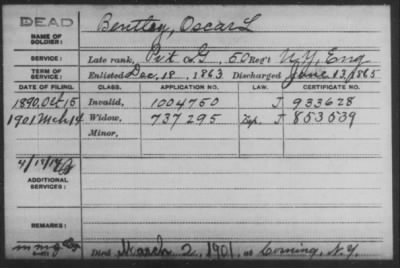 DEAD
Bentley, Oscar L
NAME OF
SOLDIER:
SERVICE: Late rank, Pvt Co G, 50 Reg't N.Y. Eng
TERM OF
SERVICE: Enlisted Dec. 18, 1863 Discharged June 13, 1865
DATE OF FILING. CLASS. APPLICATION NO. LAW. CERTIFICATE NO.
1890, Oct 15 Invalid, 1004750 J 933628
1901 Mch 14 Widow, 737295 J 853539
Minor,
ADDITIONAL
SERVICES:
REMARKS:
Died March 2, 1901, at Corning, N.Y.